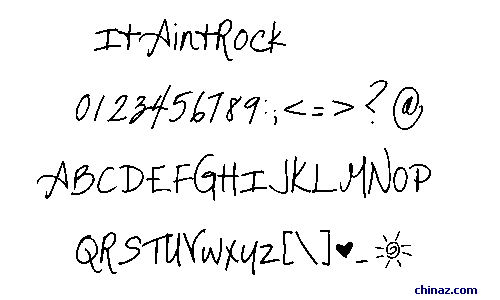 ItAintRock
0123456789:;<=>?@
ABCDEFGHIJKLMNOP
QRSTUVWXYZ[\]♥_☀
chinaz.com